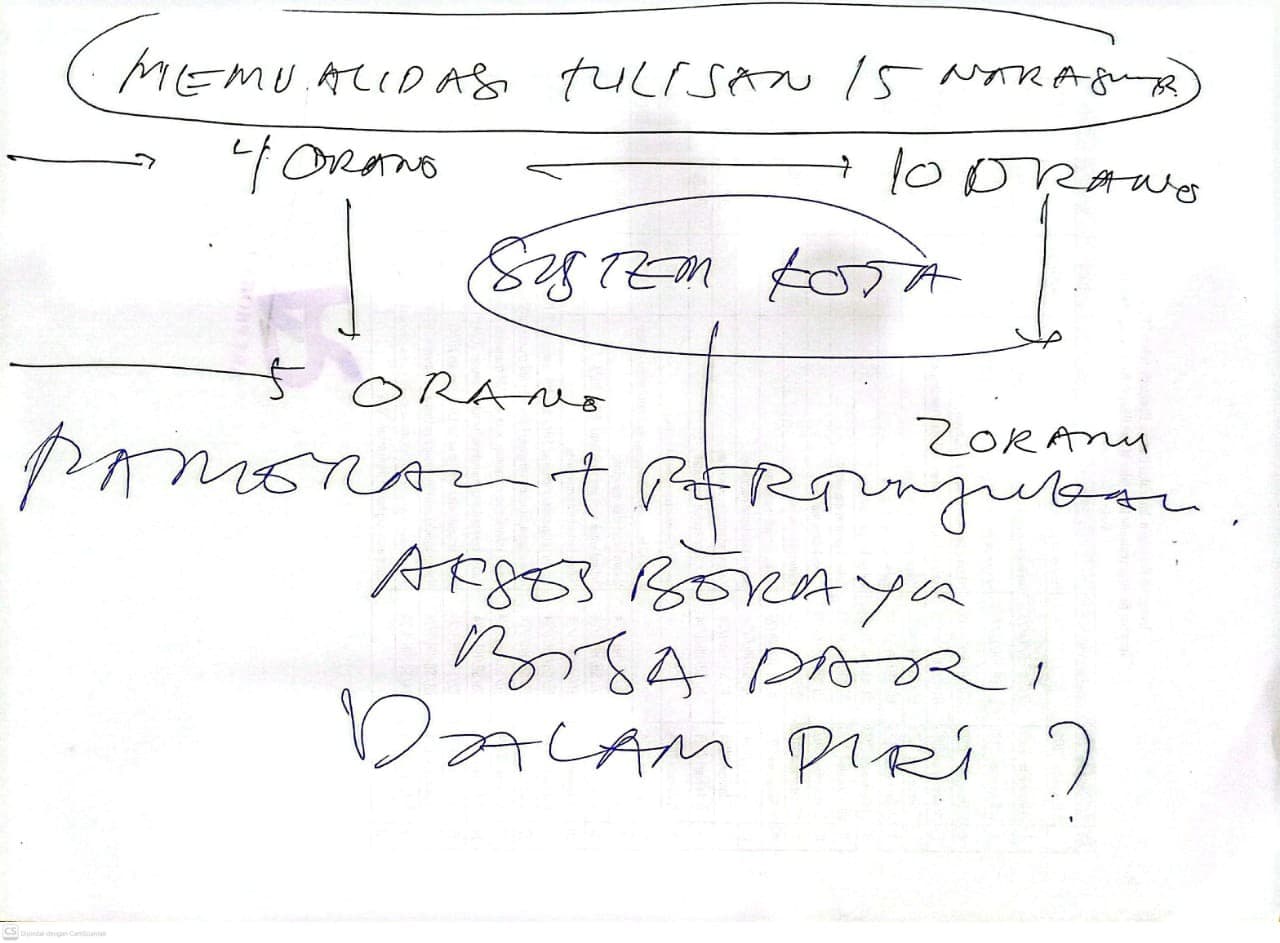 MEMVALIDASI TULISAN 15 NARASUMBER
4 ORANG 10 ORANG
SYSTEM KOTA
5 ORANG
2 ORANG
PAMERAN + PERTUNJUKAN.
AKSES
BISA DARI
DALAM DIRI ?
CS Dipindai dengan CamScanner